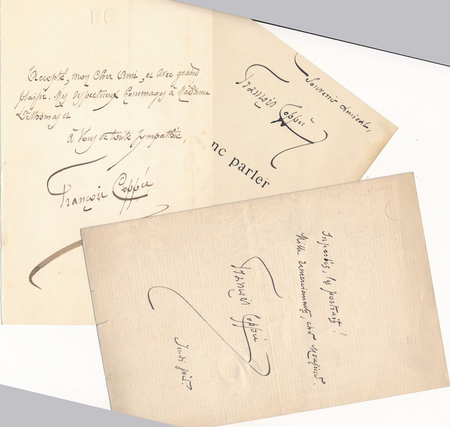 Accepté, mon cher ami, et avec grand
plaisir. Mes respectueux hommages à Madame
et
à vous de toute sympathie,
François Coppée
Souvenir amical,
François Coppée
nc parler
Superbes, les portraits !
Mille remerciements, cher Monsieur.
François Coppée
Jeudi